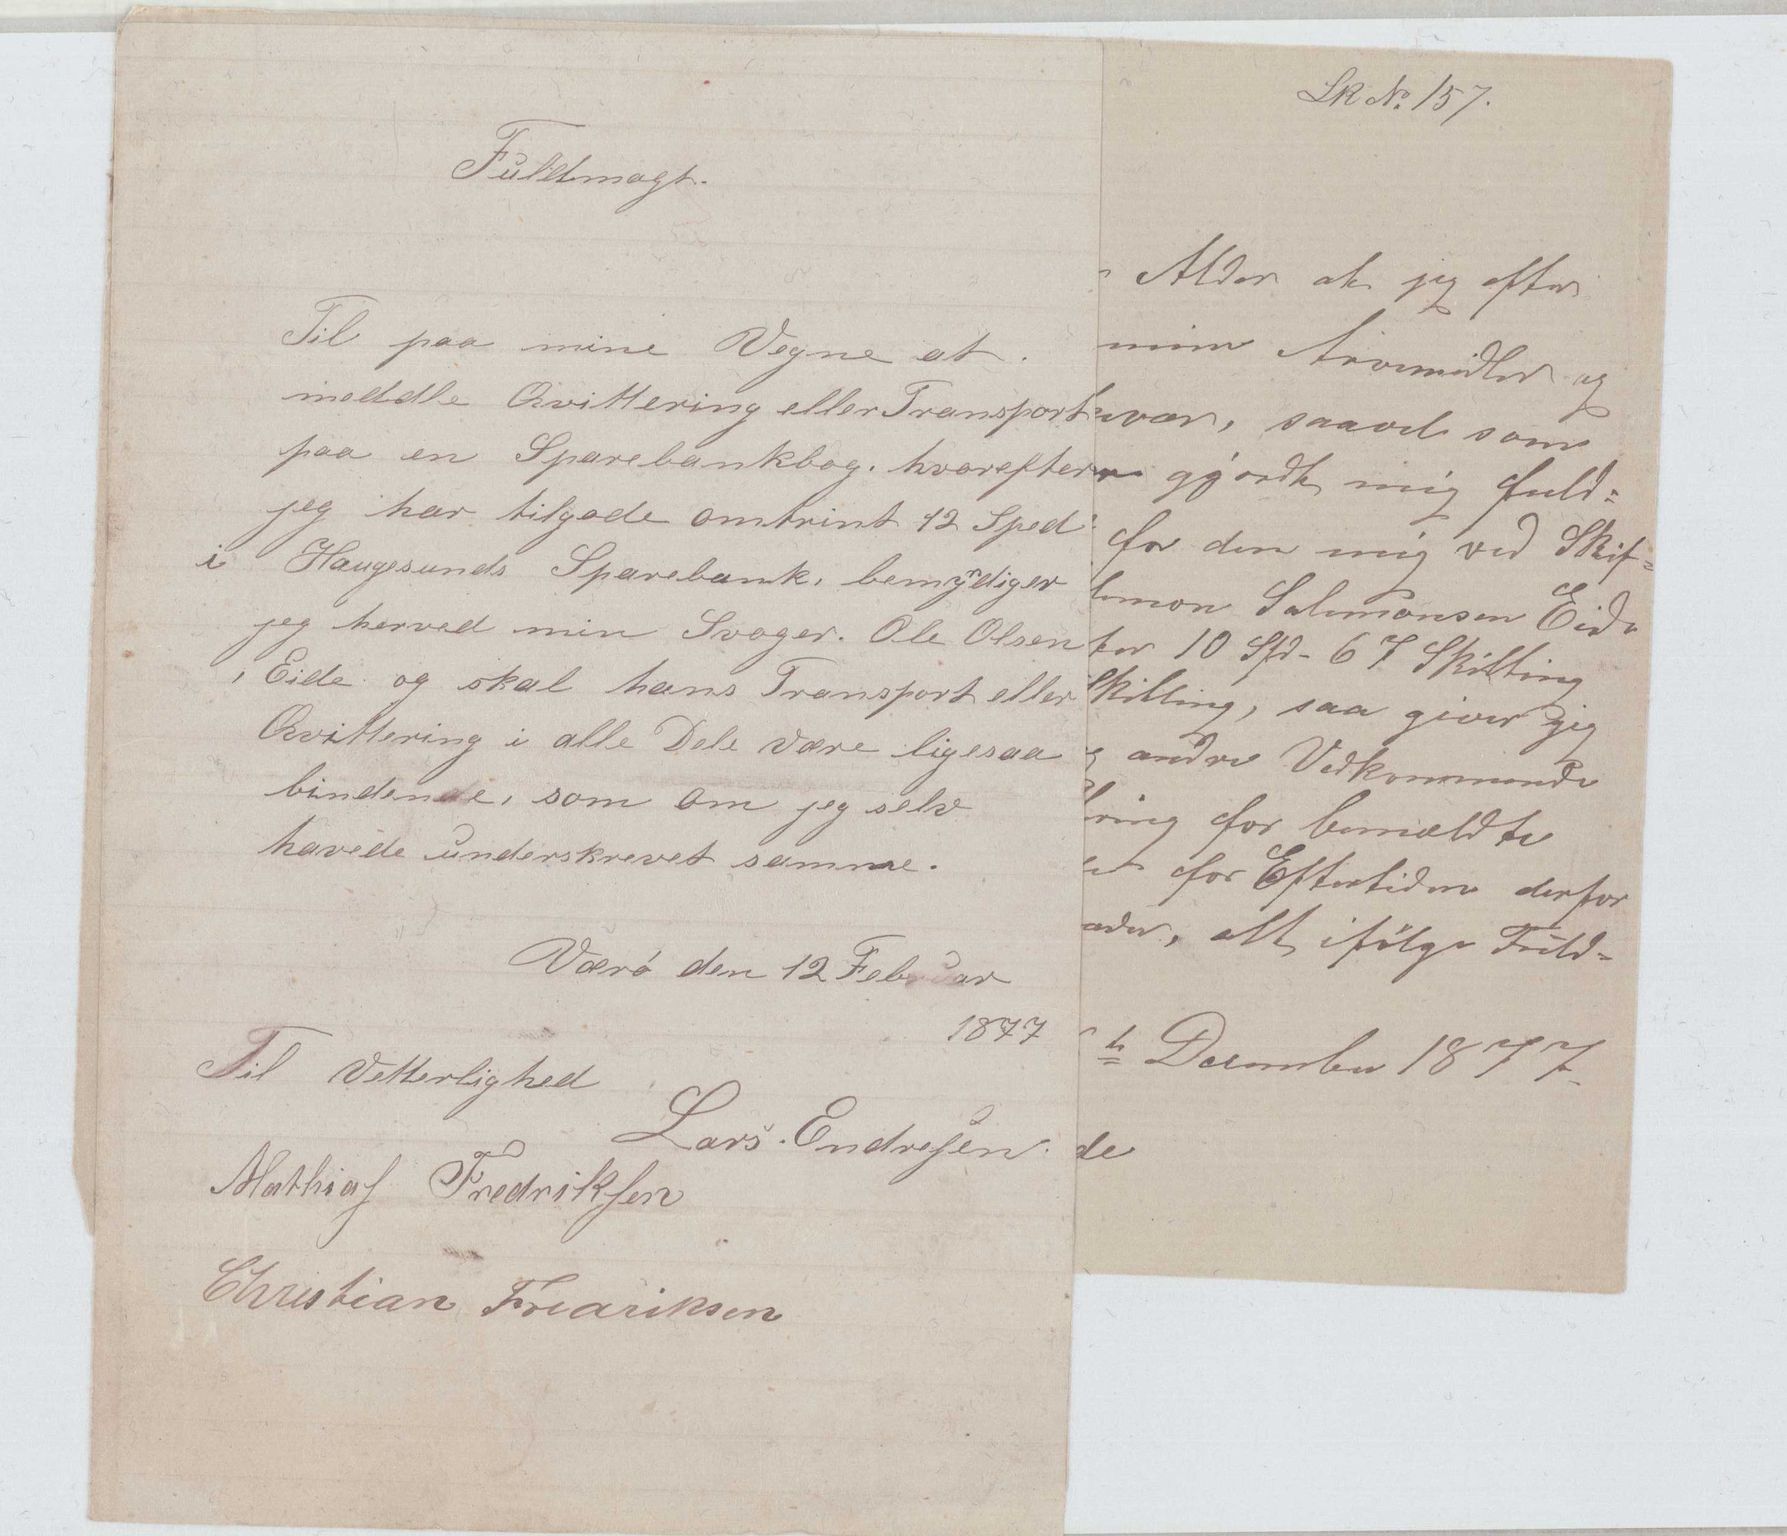 Fuldmagt.
Til paa mine Vegne at
meddle Qvittering eller Transport
paa en Sparebankbog. hvorefter
jeg har tilgode omtrint 12 Sped
i Haugesunds Sparebank, bemyndiger
jeg herved min Svoger. Ole Olsen
Eide og skal hans Transport eller
Qvittering i alle Dele være ligesaa
bindende, som om jeg selv
havede underskrevet samme.
Værø den 12 Februar
1877
Til Vetterlighed
Lars. Endresen.
Mathias Fredriksen
Christian Fredriksen
SkNo 157.
Alder at jeg efter
mine Arvemidler og
saavel som
gjordt mig fuld=
for den mig ved Skif=
Salomonsen Eide
10 Spd- 67 Skilling
Skilling, saa giver jeg
andre Vedkommende
for bemældte
for Eftertiden derfor
alt ifølge Fuld=
December 1877
de